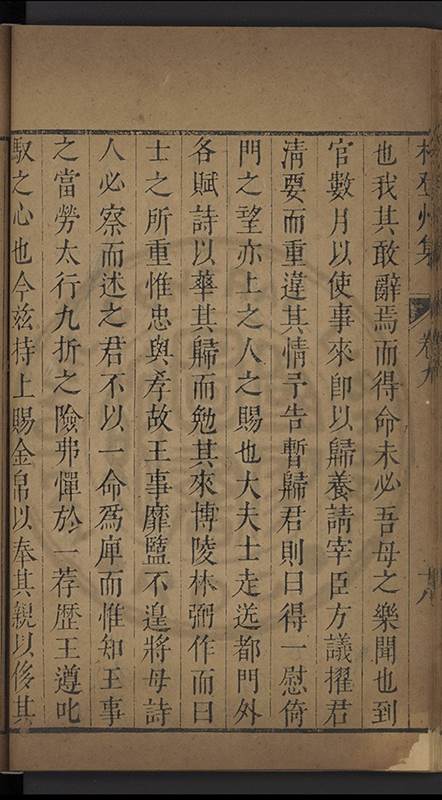 林登州集 卷九 十八
也我其敢辭焉而得命未必吾母之樂聞也到
官數月以使事來卽以歸養請宰臣方議擢君
清要而重違其情予告暫歸君則曰得一慰倚
門之望亦上之人之賜也大夫士走送都門外
各賦詩以華其歸而勉其來博陵林弼作而曰
士之所重惟忠與孝故王事靡盬不遑將母詩
人必察而述之君不以一命爲庳而惟知王事
之當勞太行九折之險弗憚於一荐歴王遵叱
馭之心也今玆持上賜金帛以奉其親以侈其